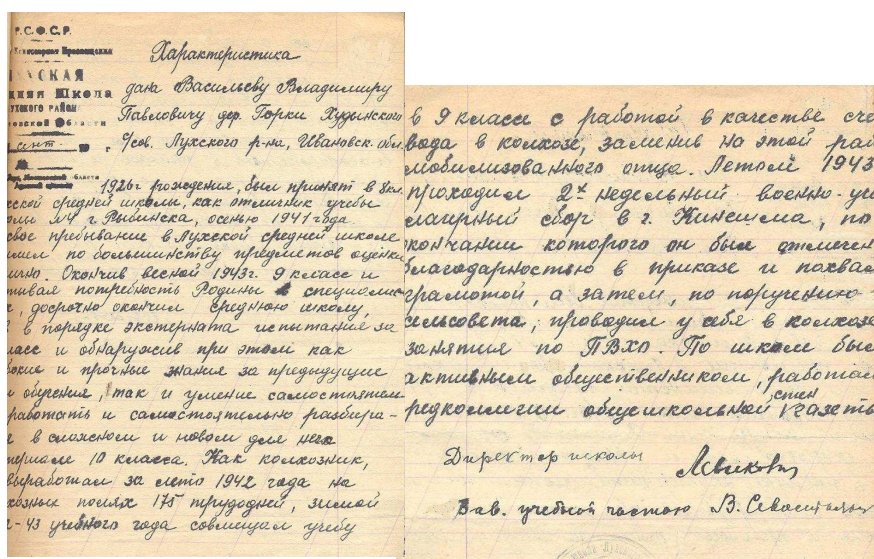 Р.С.Ф.С.Р.
Просвещения
СКАЯ
Школа
РАЙОН
Области
сент г
Характеристика
дана Васильеву Владимиру
Павловичу дер. Горки Худынского
с/сов. Лухского р-на, Ивановск. обл.
1926г рождения, был принят в 8кл.
ской средней школы, как отличник учебы
олы №4 г. Рыбинска, осенью 1941 года.
свое пребывание в Лухской средней школе
имел по большинству предметов оценки
лично. Окончив весной 1943г. 9 класс и
тывая потребность Родины в специалис-
х, досрочно окончил среднюю школу,
в в порядке экстерната испытания за
ласс и обнаружив при этом как
бокие и прочные знания за предыдущие
ы обучения, так и умение самостоятельн
работать и самостоятельно разбира-
я в сложном и новом для него
териале 10 класса. Как колхозник,
выработал за лето 1942 года на
хозных полях 175 трудодней, зимой
2-43 учебного года совмещал учебу
в 9 классе с работой в качестве сче
вода в колхозе, заменив на этой раб
мобилизованного отца. Летом 1943
проходил 2х недельный военно-уч
лагерный сбор в г. Кинешма, по
окончании которого он был отмечен
благодарностью в приказе и похвал
грамотой, а затем, по поручению
сельсовета, проводил у себя в колхозе
занятия по ПВХО. По школе был
активным общественником, работал
редколлегии общешкольной стен газеты
Директор школы
Зав. учебной частью В. Севастьян